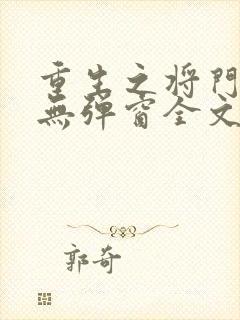 重生之将門
無弹窗全文
郭奇